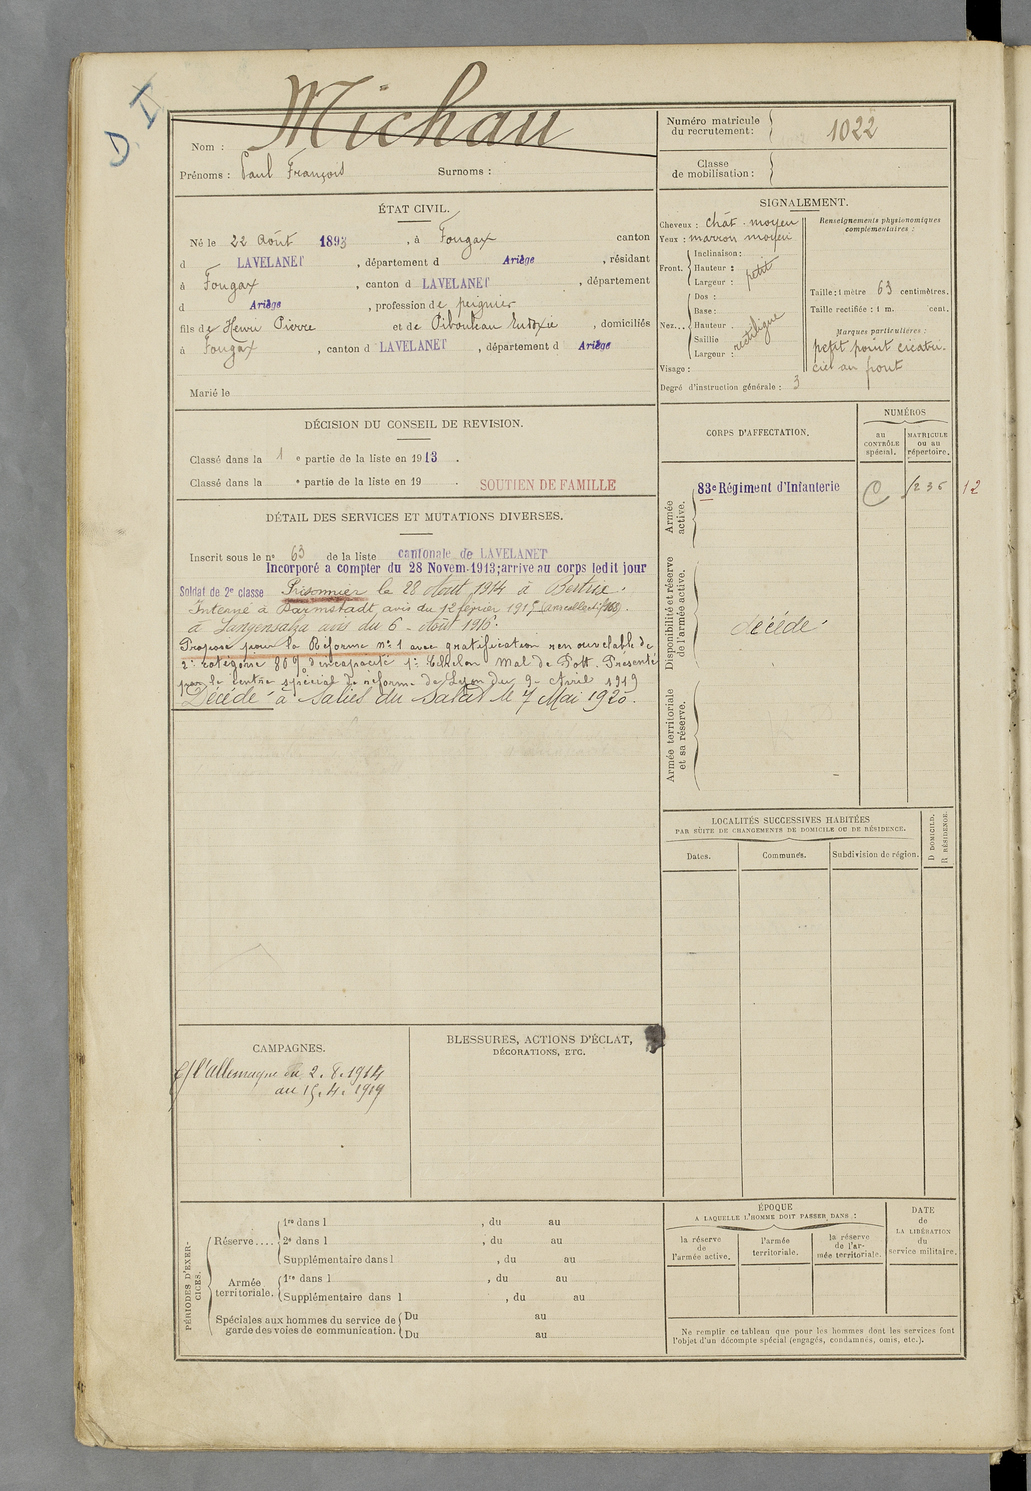 D. D
Michau
Nom :
Prénoms : Paul François Surnoms :
ÉTAT CIVIL.
Né le 22 Août 1893, à Fougax canton
d LAVELANET, département d Ariège, résidant
à Fougax, canton d LAVELANET, département
d Ariège, profession de peignier
fils de Henri Pierre et de Pibouleau Eudoxie, domiciliés
à Fougax, canton d LAVELANET, département d Ariège
Marié le
DÉCISION DU CONSEIL DE REVISION.
Classé dans la 1 e partie de la liste en 1913.
Classé dans la e partie de la liste en 19 . SOUTIEN DE FAMILLE
DÉTAIL DES SERVICES ET MUTATIONS DIVERSES.
Inscrit sous le nº 63 de la liste cantonale de LAVELANET
Incorporé a compter du 28 Novem. 1913; arrive au corps ledit jour
Soldat de 2e classe Prisonnier le 22 Août 1914 à Bertrix.
Interné à Darmstadt avis du 12 février 1915
à Langensalza avis du 6 Août 1916.
Proposé pour la Réforme nº 1 avec gratification renouvelable de
2e catégorie 80 % d'incapacité 1er Echelon Mal de Pott. Présenté
par le centre spécial de réforme de Lyon du 9 Avril 1919
Décédé à Salies du Salat le 7 Mai 1920.
CAMPAGNES.
C/ l'Allemagne du 2.8.1914
au 15.4.1919
BLESSURES, ACTIONS D'ÉCLAT,
DÉCORATIONS, ETC.
PÉRIODES D'EXERCICES.
Réserve....
1re dans l , du au
2e dans l , du au
Supplémentaire dans l , du au
Armée territoriale.
1re dans l , du au
Supplémentaire dans l , du au
Spéciales aux hommes du service de garde des voies de communication.
Du au
Du au
Numéro matricule
du recrutement: 1022
Classe
de mobilisation :
SIGNALEMENT.
Cheveux : chât. moyen
Yeux : marron moyen
Front. Inclinaison:
Hauteur : petit
Largeur :
Nez... Dos :
Base:
Hauteur . rectiligne
Saillie
Largeur :
Visage :
Degré d'instruction générale : 3
Renseignements physionomiques
complémentaires :
Taille: 1 mètre 63 centimètres.
Taille rectifiée : 1 m. cent.
Marques particulières :
petit point cicatri-
ciel au front
CORPS D'AFFECTATION.
NUMÉROS
au CONTRÔLE spécial.
MATRICULE ou au répertoire.
Armée active.
83e Régiment d'Infanterie
12
Disponibilité et réserve de l'armée active.
décédé
Armée territoriale et sa réserve.
LOCALITÉS SUCCESSIVES HABITÉES
PAR SUITE DE CHANGEMENTS DE DOMICILE OU DE RÉSIDENCE.
Dates. Communes. Subdivision de région.
D DOMICILE.
R RÉSIDENCE.
ÉPOQUE
A LAQUELLE L'HOMME DOIT PASSER DANS :
la réserve de l'armée active.
l'armée territoriale.
la réserve de l'armée territoriale.
DATE
de
LA LIBÉRATION
du
service militaire.
Ne remplir ce tableau que pour les hommes dont les services font
l'objet d'un décompte spécial (engagés, condamnés, omis, etc.).